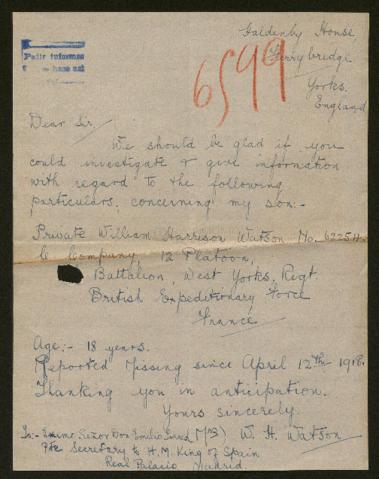 Galdenby House,
Ferrybridge
Yorks.
England
6599
Dear Sir,
We should be glad if you
could investigate & give information
with regard to the following
particulars, concerning my son:-
Private William Harrison Watson No. 62254
C Company, 12 Platoon,
Battalion, West Yorks. Regt.
British Expeditionary Force
France
Age:- 18 years.
Reported Missing since April 12th 1918.
Thanking you in anticipation.
Yours sincerely
(Mrs) W. H. Watson
To:- Señor Don Emilio
Secretary to H.M. King of Spain
Real Palacio Madrid